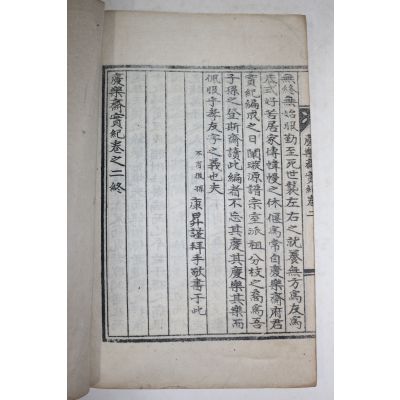 慶樂齋實紀卷二
無終無始服勤至死世襲左右之就養無方爲友爲
式好若居家傳惰慢之休偃爲常自慶樂齋府君
實紀編成之日閬瑍源譜宗室派祖分枝之裔爲吾
子孫之登斯齋讀此編者不忘其慶其慶樂其樂而
佩服乎孝友字之義也夫
不肖後孫 康昇謹拜手敬書于此
慶樂齋實紀卷之二終